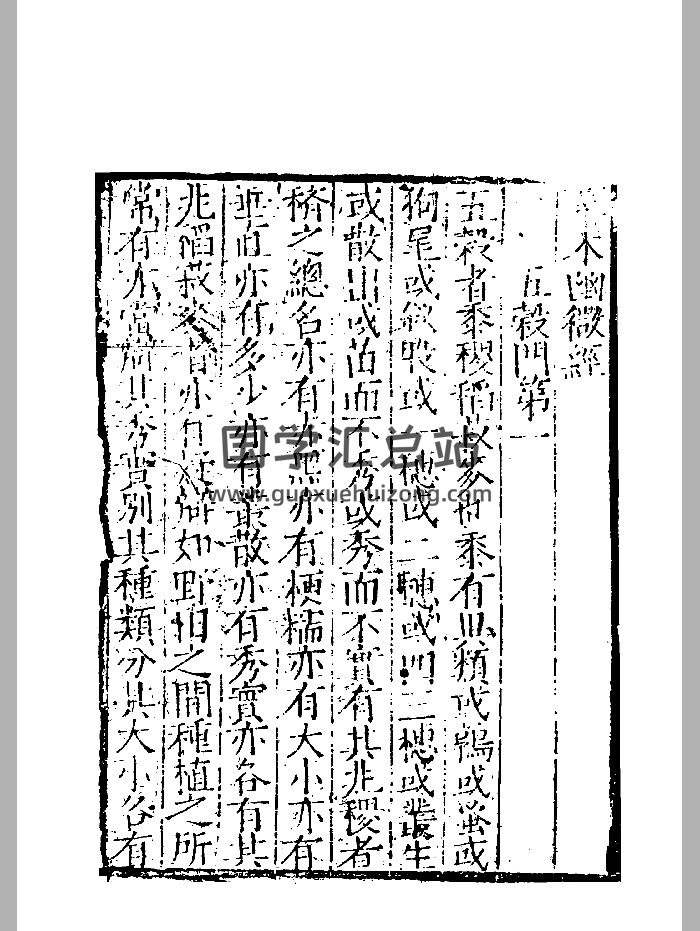 木幽微經
五穀門第一
五穀者黍稷稻菽麥也黍有四類或鴳或蚤或
狗尾或 或一穗或二穗或 三穗或叢生
或散出或苗而不秀或秀而不實有其兆稷者
穄之總名亦有 黑亦有粳糯亦有大小亦有
垂直亦有多少亦有叢散亦有秀實亦各有其
兆稻菽麥者亦有 如 之間種植之所
常有 其秀實別其種類分其大小各有
国学汇总站
www.guoxuehuizong.com